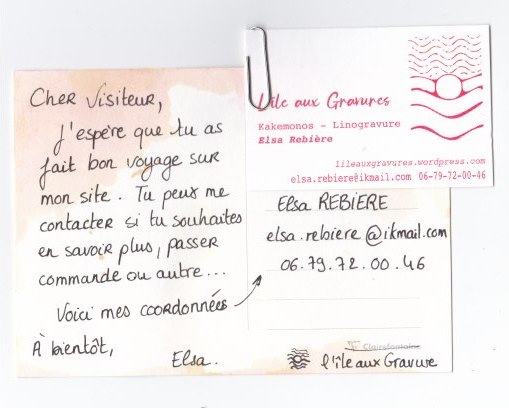 L'île aux Gravures
Kakemonos - Linogravure
Elsa Rebière
lileauxgravures.wordpress.com
elsa.rebiere@ikmail.com 06-79-72-00-46
Cher Visiteur,
J'espère que tu as
fait bon voyage sur
mon site. Tu peux me
contacter si tu souhaites
en savoir plus, passer
commande ou autre...
Voici mes coordonnées
À bientôt,
Elsa.
Elsa REBIERE
elsa.rebiere@ikmail.com
06.79.72.00.46
Clairefontaine
l'île aux Gravure